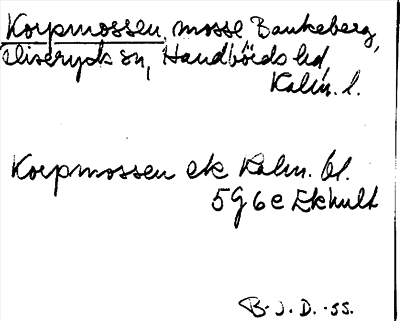 Korpmossen, mosse Bankeberg,
Vissefjärda sn, Handbörds hd,
Kalm. l.
Korpmossen ek Kalm. bl.
5g6e Ekhult
B.J.D. -55.